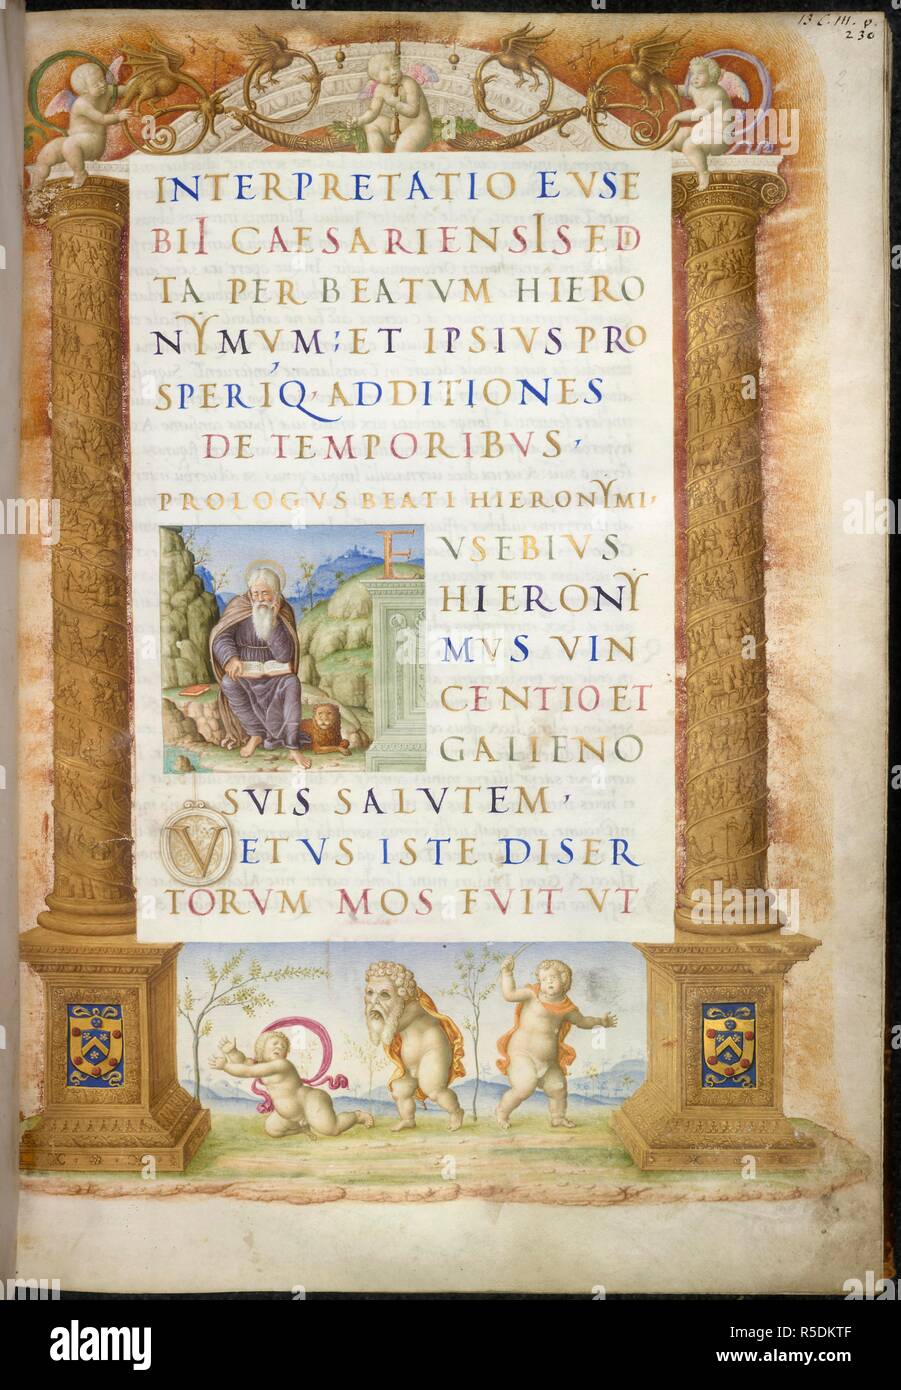 B C. III. 9.
230
2
INTERPRETATIO EVSE
BII CAESARIENSIS ED
TA PER BEATVM HIERO
NYMVM; ET IPSIVS PRO
SPERIQ, ADDITIONES
DE TEMPORIBVS,
PROLOGVS BEATI HIERONYMI,
E VSEBIVS
HIERONY
MVS VIN
CENTIO ET
GALIENO
SVIS SALVTEM,
VETVS ISTE DISER
TORVM MOS FVIT VT
alamy
Image ID: R5DKTF
www.alamy.com